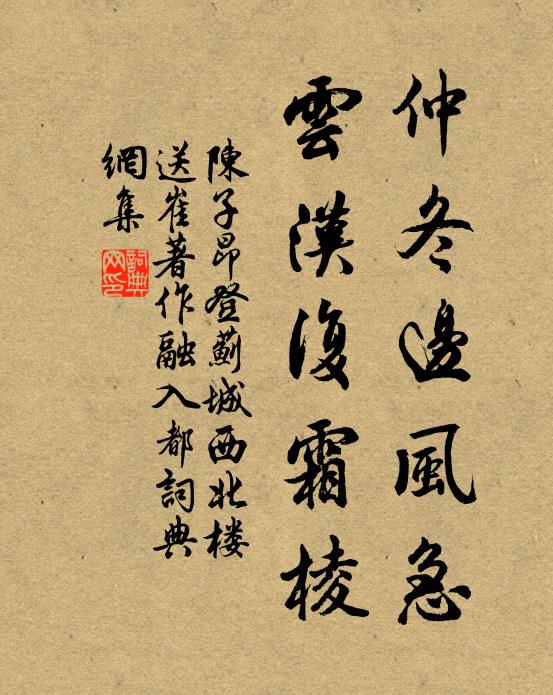 仲冬邊風急
雲漢復霜棱
陳子昂登薊城西北楼
送崔著作融入都詞典
網集
詞典网印